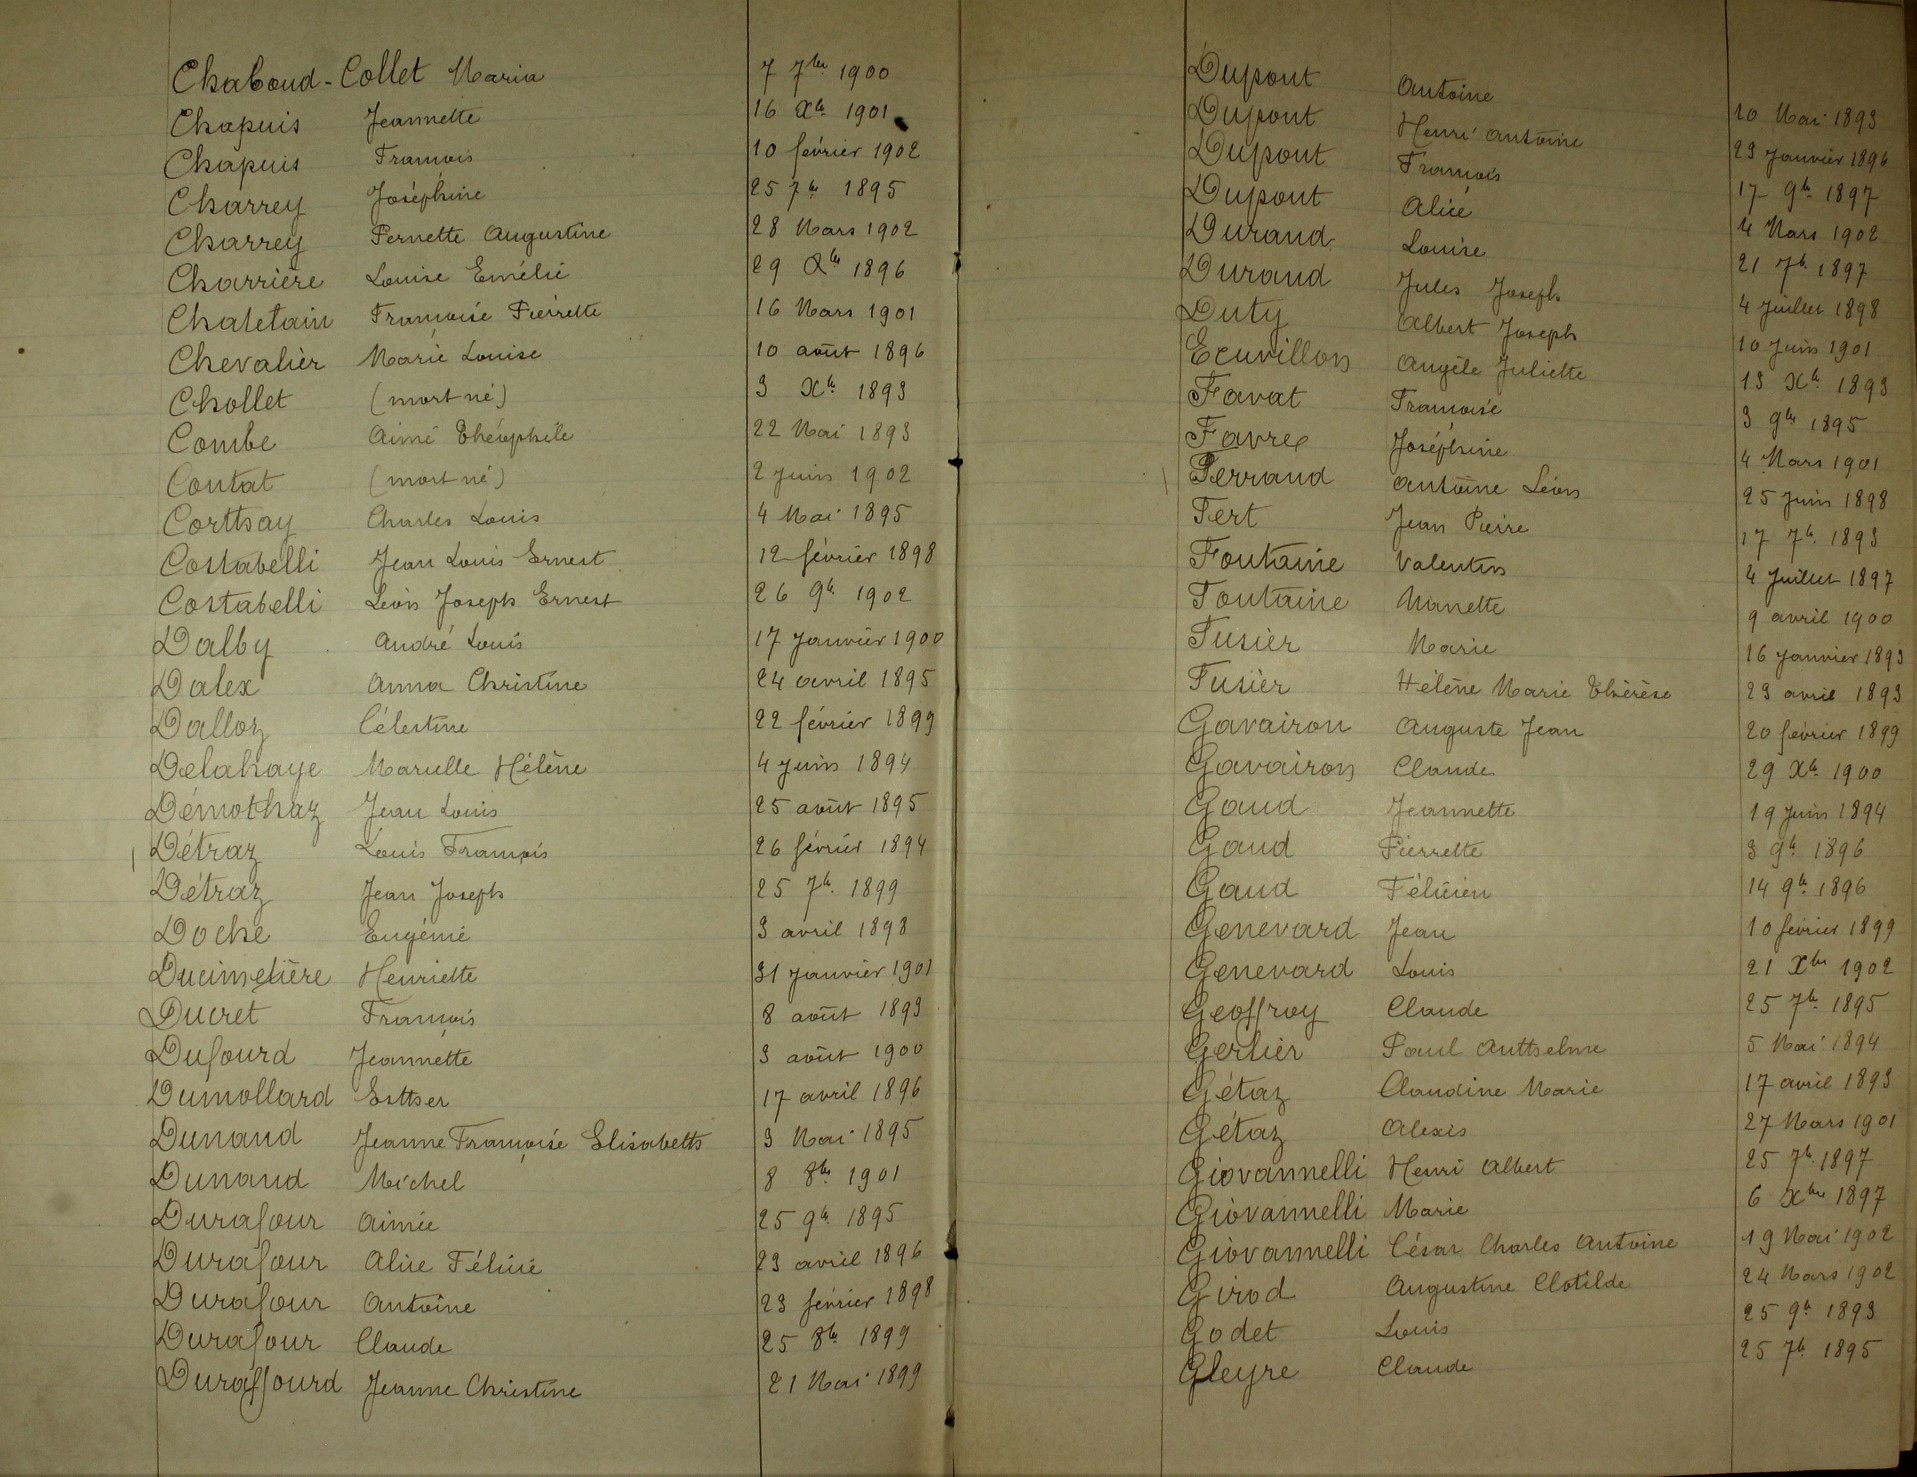 Chaboud-Collet Maria 7 7bre 1900
Chapuis Jeannette 16 Xbre 1901
Chapuis François 10 février 1902
Charrey Joséphine 25 7bre 1895
Charrey Pernette Augustine 28 Mars 1902
Charrière Louise Emélie 29 Xbre 1896
Chatelain Françoise Pierrette 16 Mars 1901
Chevalier Marie Louise 10 août 1896
Chollet (mort né) 3 Xbre 1893
Combe Aimé Théophile 22 Mai 1893
Contat (mort né) 2 Juin 1902
Corthay Charles Louis 4 Mai 1895
Costabelli Jean Louis Ernest 12 février 1898
Costabelli Léon Joseph Ernest 26 9bre 1902
Dalby André Louis 17 Janvier 1900
Dalex Anna Christine 24 avril 1895
Dalloz Célestine 22 février 1899
Delahaye Marielle Hélène 4 Juin 1894
Démothaz Jean Louis 25 août 1895
Détraz Louis François 26 février 1894
Détraz Jean Joseph 25 7bre 1899
Doche Eugénie 3 avril 1898
Ducimetière Henriette 31 Janvier 1901
Ducret François 8 août 1893
Dufourd Jeannette 3 août 1900
Dumollard Esther 17 avril 1896
Dunand Jeanne Françoise Elisabeth 3 Mai 1895
Dunand Michel 8 8bre 1901
Durafour Aimée 25 9bre 1895
Durafour Alice Félicie 23 avril 1896
Durafour Antoine 23 février 1898
Durafour Claude 25 8bre 1899
Duraffourd Jeanne Christine 21 Mai 1899
Dupont Antoine 10 Mai 1893
Dupont Henri Antoine 23 Janvier 1896
Dupont François 17 9bre 1897
Dupont Alice 4 Mars 1902
Durand Louise 21 7bre 1897
Durand Jules Joseph 4 Juillet 1898
Duty Albert Joseph 10 Juin 1901
Ecuvillon Angèle Juliette 13 Xbre 1893
Favat Françoise 3 9bre 1895
Favre Joséphine 4 Mars 1901
Ferrand Antoine Léon 25 Juin 1898
Fert Jean Pierre 17 7bre 1893
Fontaine Valentin 4 Juillet 1897
Fontaine Nanette 9 avril 1900
Fusier Marie 16 Janvier 1893
Fusier Hélène Marie Thérèse 23 avril 1893
Gavairon Auguste Jean 20 février 1899
Gavairon Claude 29 Xbre 1900
Gaud Jeannette 19 Juin 1894
Gaud Pierrette 3 9bre 1896
Gaud Félicien 14 9bre 1896
Genevard Jean 10 février 1899
Genevard Louis 21 Xbre 1902
Geoffroy Claude 25 7bre 1895
Gerlier Paul Anthelme 5 Mai 1894
Gétaz Claudine Marie 17 avril 1893
Gétaz Alexis 27 Mars 1901
Giovannelli Henri Albert 25 7bre 1897
Giovannelli Marie 6 Xbre 1897
Giovannelli César Charles Antoine 19 Mai 1902
Girod Augustine Clotilde 24 Mars 1902
Godet Louis 25 9bre 1893
Gleyre Claude 25 7bre 1895